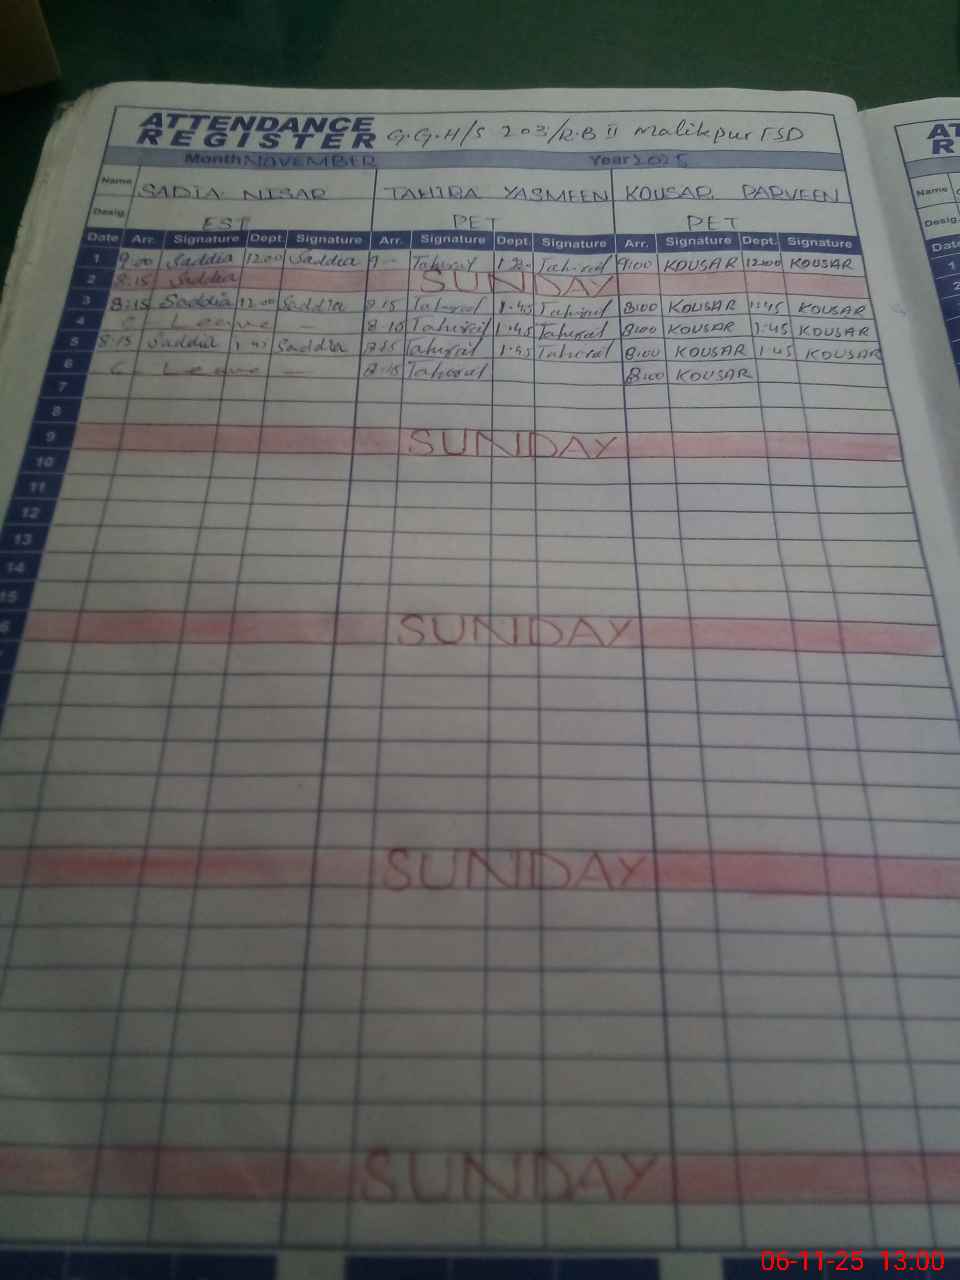 ATTENDANCE
REGISTER G.G.H/S 203/R.B II Malikpur FSD
Month NOVEMBER Year 2025
Name SADIA NISAR TAHIRA YASMEEN KOUSAR PARVEEN Name
Desig. EST PET PET Desig.
Date Arr. Signature Dept. Signature Arr. Signature Dept. Signature Arr. Signature Dept. Signature Date
1 9.00 Saddia 12.00 Saddia 9 - Tahirat Tahirat 9:00 KOUSAR 12:00 KOUSAR 1
2 8:15 Saddia SUNDAY
3 8:15 Saddia 12.00 Saddia 8.15 Tahirat 1.45 Tahirat 8:00 KOUSAR 1:45 KOUSAR
4 C Leave - 8.10 Tahirat 1.45 Tahirat 8:00 KOUSAR 1:45 KOUSAR
5 8:15 Saddia 1.45 Saddia 8.15 Tahirat 1.45 Tahirat 8:00 KOUSAR 1:45 KOUSAR
6 C Leave - 8.15 Tahirat 8:00 KOUSAR
7
8
9 SUNDAY
10
11
12
13
14
15
6 SUNDAY
SUNDAY
SUNDAY
06-11-25 13:00